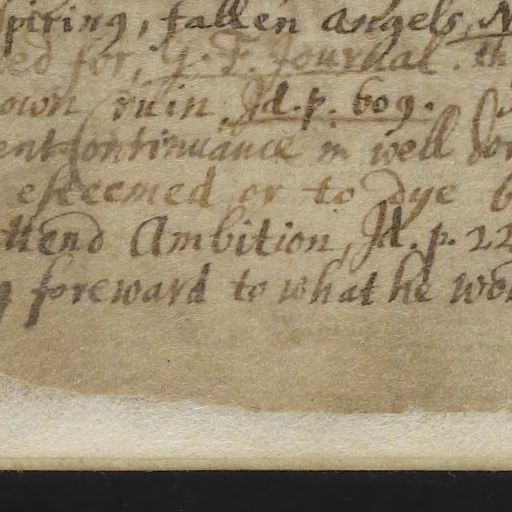 spiring, fallen Angels, N
ed for, G. F. Journal. th
own ruin. Jd. p. 609.
ent Continuance in well do
esteemed or to dye b
ttend Ambition, Jd. p. 22
g foreward to what he wo